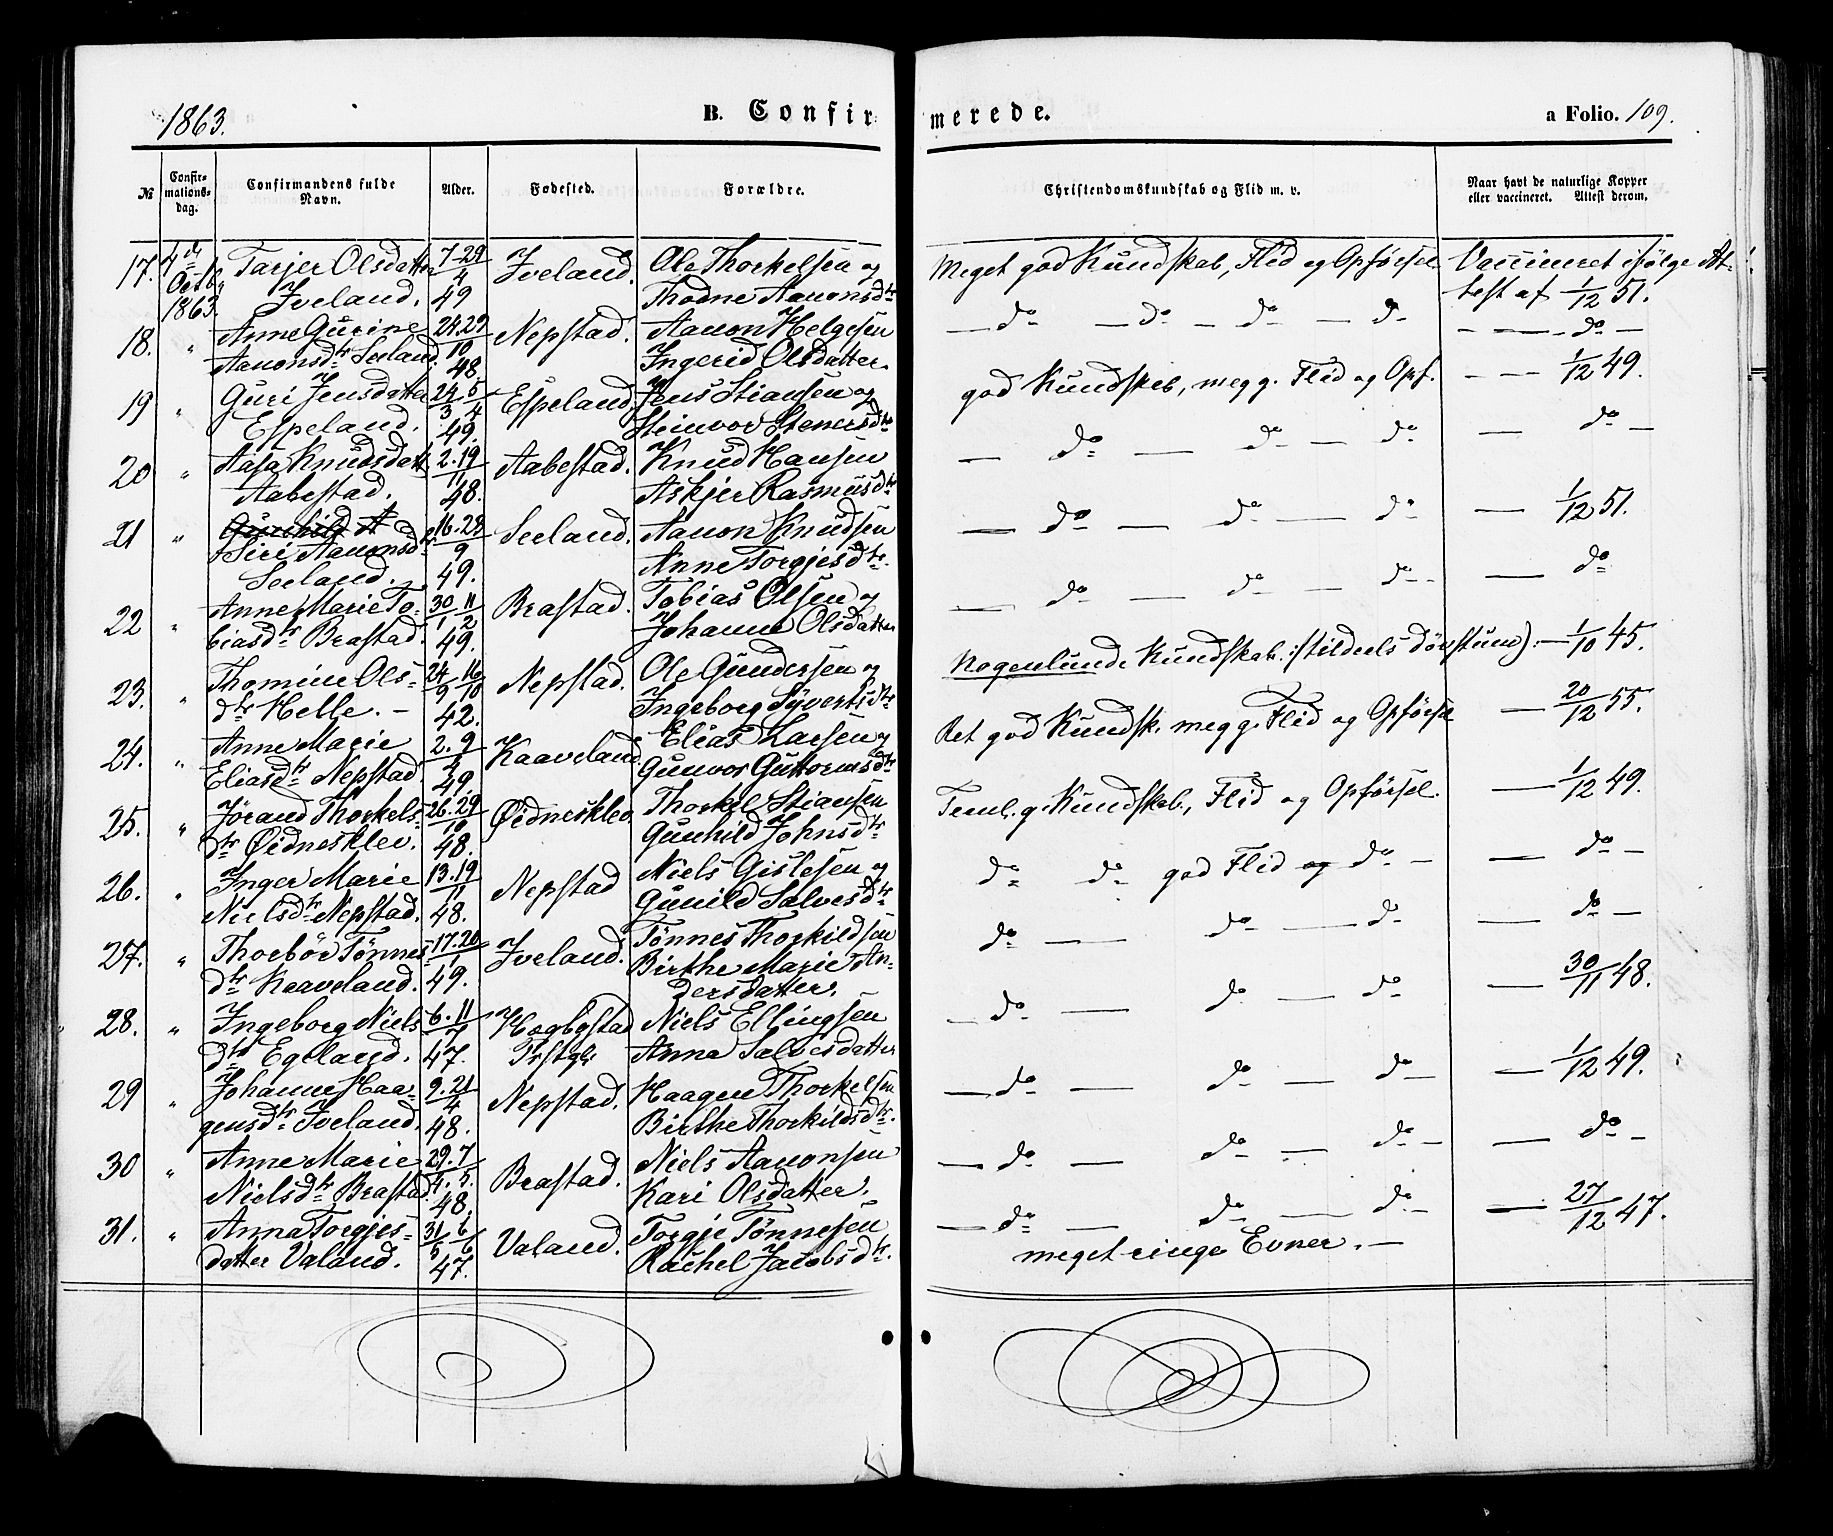 1863.
B. Confirmerede.
a Folio. 109.
No
Confirmationsdag.
Confirmandens fulde Navn.
Alder.
Fødested.
Forældre.
Christendomskundskab og Flid m. v.
Naar havt de naturlige Kopper eller vaccineret. Attest derom.
17. 4d Octb. 1863. Tarjer Olsdatter 7-29/4 49 Iveland. Ole Thorkelsen og Meget god Kundskab, Flid og Opførsel Vaccineret ifølge At-
Iveland. Thodne Aanonsdtr test af 1/12 51.
18. " Anne Gurine 24.29/10 48 Nepstad. Aanon Helgesen — do — do — do — do — — do —
Aanonsdtr Seeland. Ingerid Olsdatter.
19 " Guri Jensdatter 24/3 5/4 49. Espeland. Jens Stiansen og god Kundskab, meg g. Flid og Opf. — — 1/12 49.
Espeland. Steinvor Stenersdtr
20 " Aasa Knudsdatt 2.19/11 48. Aabestad. Knud Hansen — do — do — do — do —
Aabestad. Askjer Rasmusdtr
21 " Gunhild A 16.28/9 49. Seeland. Aanon Knudsen — do — do — do — 1/12 51.
Siri Aanonsd Anne Torgjesdtr.
Seeland.
22 " Anne Marie To- 30/1 11/2 49. Brastad. Tobias Olsen og — do — do — do — — do
biasdtr Brastad. Johanne Olsdatter
23. " Thomine Ols- 24/9 16/10 42. Nepstad. Ole Gundersen og Nogenlunde Kundskab. :/tildeels døvstum): — 1/10 45.
dtr Helle. — Ingeborg Syvertsdtr
24. " Anne Marie 2.9/4 49. Kaaveland. Elias Larsen og Ret god Kundsk. meg g. Flid og Opførsel — 20/12 55.
Eliasdtr Nepstad. Gunvor Guttormsdtr
25. " Jørand Thorkels- 26.29/10 48. Øidnesklev Thorkel Stiansen Teml. g. Kundskab, Flid og Opførsel. — 1/12 49.
dtr Øidnesklev. Gunhild Johnsdtr
26. " Inger Marie 13.19/11 48. Nepstad Niels Gislesen og do do god Flid og do — — do —
Nielsdtr Nepstad. Gunild Salvesdtr
27. " Thorbør Tønnes- 17.20/1 49. Iveland. Tønnes Thorkildsen do — do — do — — do —
dtr Kaaveland. Birthe Marie An-
dersdatter.
28. " Ingeborg Niels 6.11/7 47. Hægbostad Niels Ellingsen — do — do — do — 30/11 48.
dtr Egeland. Prstgl. Anna Salvesdatter
29 " Johanne Haa- 9.21/4 48. Nepstad. Haagen Thorkelsen — do — do — do — — 1/12 49.
gensdtr Iveland. Birthe Thorkildsdtr.
30 " Anne Marie 29.7/4.5. 48. Brastad. Niels Aanonsen — do — do — do — — do —
Nielsdtr Brastad. Kari Olsdatter.
31. " Anna Torgjes- 31/5 6/6 47. Valand. Torgje Tønnesen — do — do — do — — 27/12 47.
datter Valand. Rachel Jacobsdtr. meget ringe Evner. —